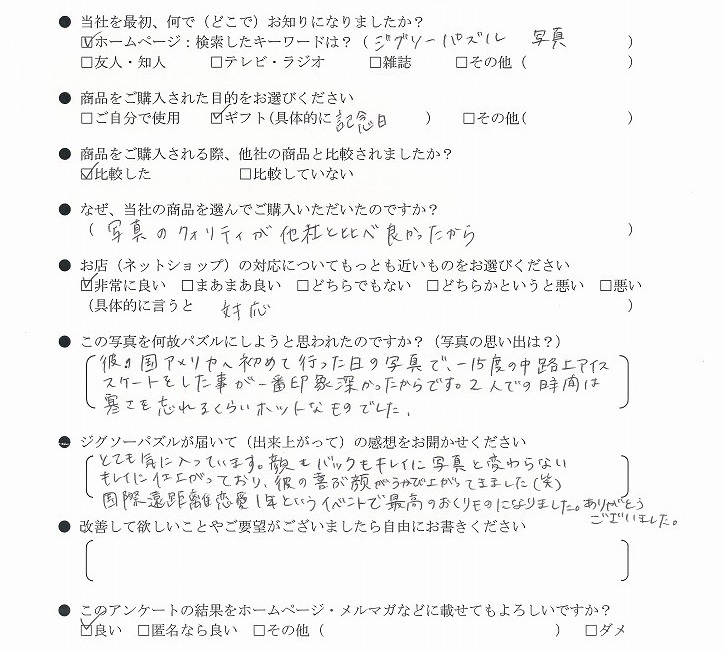 ● 当社を最初、何で（どこで）お知りになりましたか？
☑ホームページ：検索したキーワードは？（ジグソーパズル 写真 ）
□友人・知人 □テレビ・ラジオ □雑誌 □その他（ ）
● 商品をご購入された目的をお選びください
□ご自分で使用 ☑ギフト(具体的に 記念日 ） □その他( ）
● 商品をご購入される際、他社の商品と比較されましたか？
☑比較した □比較していない
● なぜ、当社の商品を選んでご購入いただいたのですか？
（ 写真のクオリティが他社と比べ良かったから ）
● お店（ネットショップ）の対応についてもっとも近いものをお選びください
☑非常に良い □まあまあ良い □どちらでもない □どちらかというと悪い □悪い
（具体的に言うと 対応 ）
● この写真を何故パズルにしようと思われたのですか？（写真の思い出は？）
彼の国アメリカへ初めて行った日の写真で、−15度の中路上アイス
スケートをした事が一番印象深かったからです。2人での時間は
寒さを忘れるくらいホットなものでした。
● ジグソーパズルが届いて（出来上がって）の感想をお聞かせください
とても気に入っています。顔もバックもキレイに写真と変わらない
キレイに仕上がっており、彼の喜ぶ顔がうかび上がってきました(笑)
国際遠距離恋愛1年というイベントで最高のおくりものになりました。ありがとう
ございました。
● 改善して欲しいことやご要望がございましたら自由にお書きください
● このアンケートの結果をホームページ・メルマガなどに載せてもよろしいですか？
☑良い □匿名なら良い □その他（ ） □ダメ